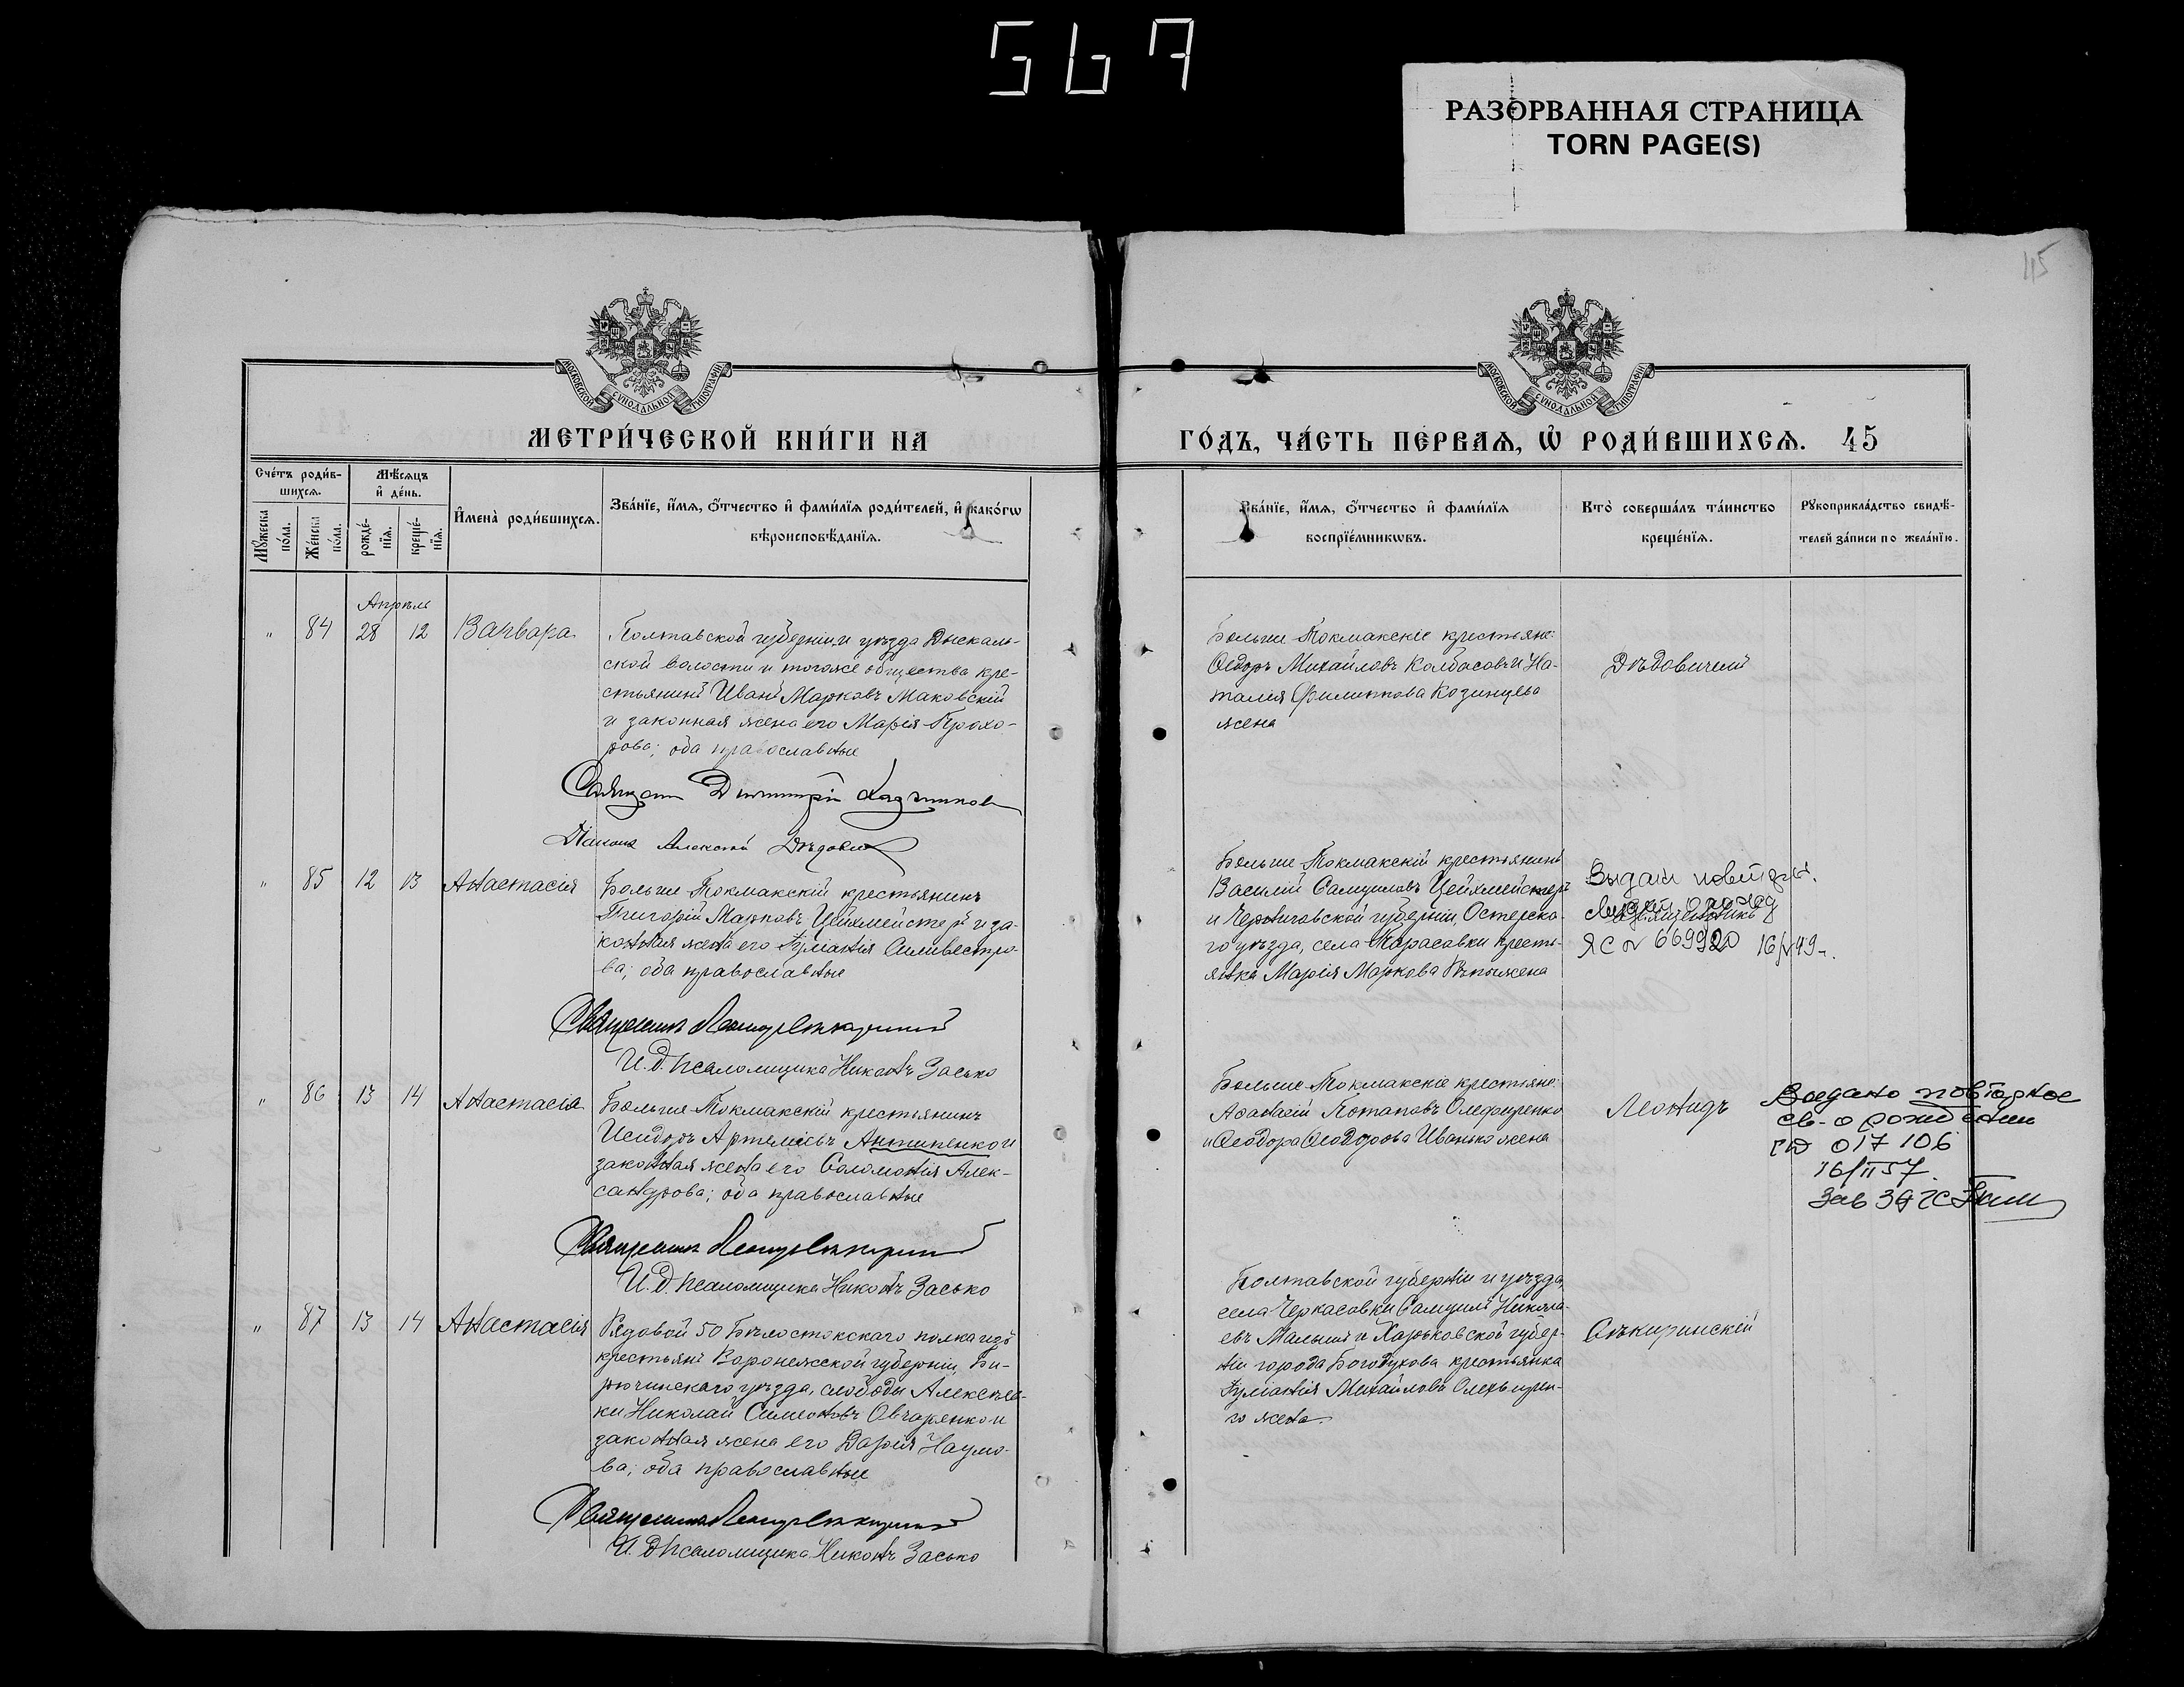 567
РАЗОРВАННАЯ СТРАНИЦА
TORN PAGE(S)
115
МОСКОВСКОЙ СѴНОДАЛЬНОЙ ТИПОГРАФІИ
МОСКОВСКОЙ СѴНОДАЛЬНОЙ ТИПОГРАФІИ
МЕТРИ́ЧЕСКОЙ КНИ́ГИ НА
ГО́ДЪ, ЧА́СТЬ ПЕ́РВАѦ, Ѡ҆ РОДИ́ВШИХСѦ. 45
Сче́тъ роди́в-
шихсѧ.
Мꙋ́жеска по́ла.
Же́нска по́ла.
Мѣ́сѧцъ
и҆ де́нь.
рожде́-нїѧ.
креще́-нїѧ.
И҆мена̀ роди́вшихсѧ.
Зва́нїе, и҆́мѧ, ѻ҆́тчество и҆ фами́лїѧ роди́телей, и҆ како́гѡ
вѣроисповѣ́данїѧ.
Зва́нїе, и҆́мѧ, ѻ҆́тчество и҆ фами́лїѧ
воспрїе́мникѡвъ.
Кто̀ соверша́лъ та́инство
креще́нїѧ.
Рꙋкоприкла́дство свидѣ́-
телей за́писи по жела́нїю.
Апрѣль
" 84 28 12 Варвара
Полтавской губерніи и уѣзда Дыскаль-
ской волости и тогоже общества кре-
стьянинъ Иванъ Марковъ Маковскій
и законная жена его Марія Прохо-
рова; оба православные
Священ Димитрій
Діаконъ Алексѣй Дѣдович
Больше-Токмакскіе крестьяне:
Ѳедоръ Михайловъ Колбасовъ и На-
талия Филиппова Козинцева
жена
Дѣдовичем
" 85 12 13 Анастасія
Больше-Токмакскій крестьянинъ
Григорій Марковъ Цейхмейстеръ и за-
конная жена его Іуліанія Силивестро-
ва; оба православные
Священникъ Леонидъ Сѣкиринскій
И. д. псаломщика Никонъ Засько
Больше-Токмакскій крестьянинъ
Василій Самуиловъ Цейхмейстеръ
и Черниговской губерніи, Остерска-
го уѣзда, села Тарасовки кресть-
янка Марія Маркова жена
Выдан
Священникъ
ЯС № 669920 16/V 49
" 86 13 14 Анастасія
Больше-Токмакскій крестьянинъ
Исидоръ Артеміевъ Антипенко и
законная жена его Соломонія Алек-
сандрова; оба православные
Священникъ Леонидъ Сѣкиринскій
И. д. псаломщика Никонъ Засько
Больше-Токмакскіе крестьяне:
Аѳанасій Потаповъ Олефиренко
и Ѳеодора Ѳеодорова Иванько жена
Леонидъ
Выдано повторное
св-о о рождении
017106
16/II 57
Зав ЗАГС
" 87 13 14 Анастасія
Рядовой 50 Бѣлостокскаго полка изъ
крестьянъ Воронежской губерніи, Би-
рючинскаго уѣзда, слободы Алексѣев-
ки Николай Симеоновъ Овчаренко и
законная жена его Дарія Наумо-
ва; оба православные
Священникъ Леонидъ Сѣкиринскій
И. д. псаломщика Никонъ Засько
Полтавской губерніи и уѣзда,
села Черкасовки Самуилъ Никола-
евъ Малышъ и Харьковской губер-
ніи города Богодухова крестьянка
Іуліанія Михайлова
жена.
Сѣкиринскій